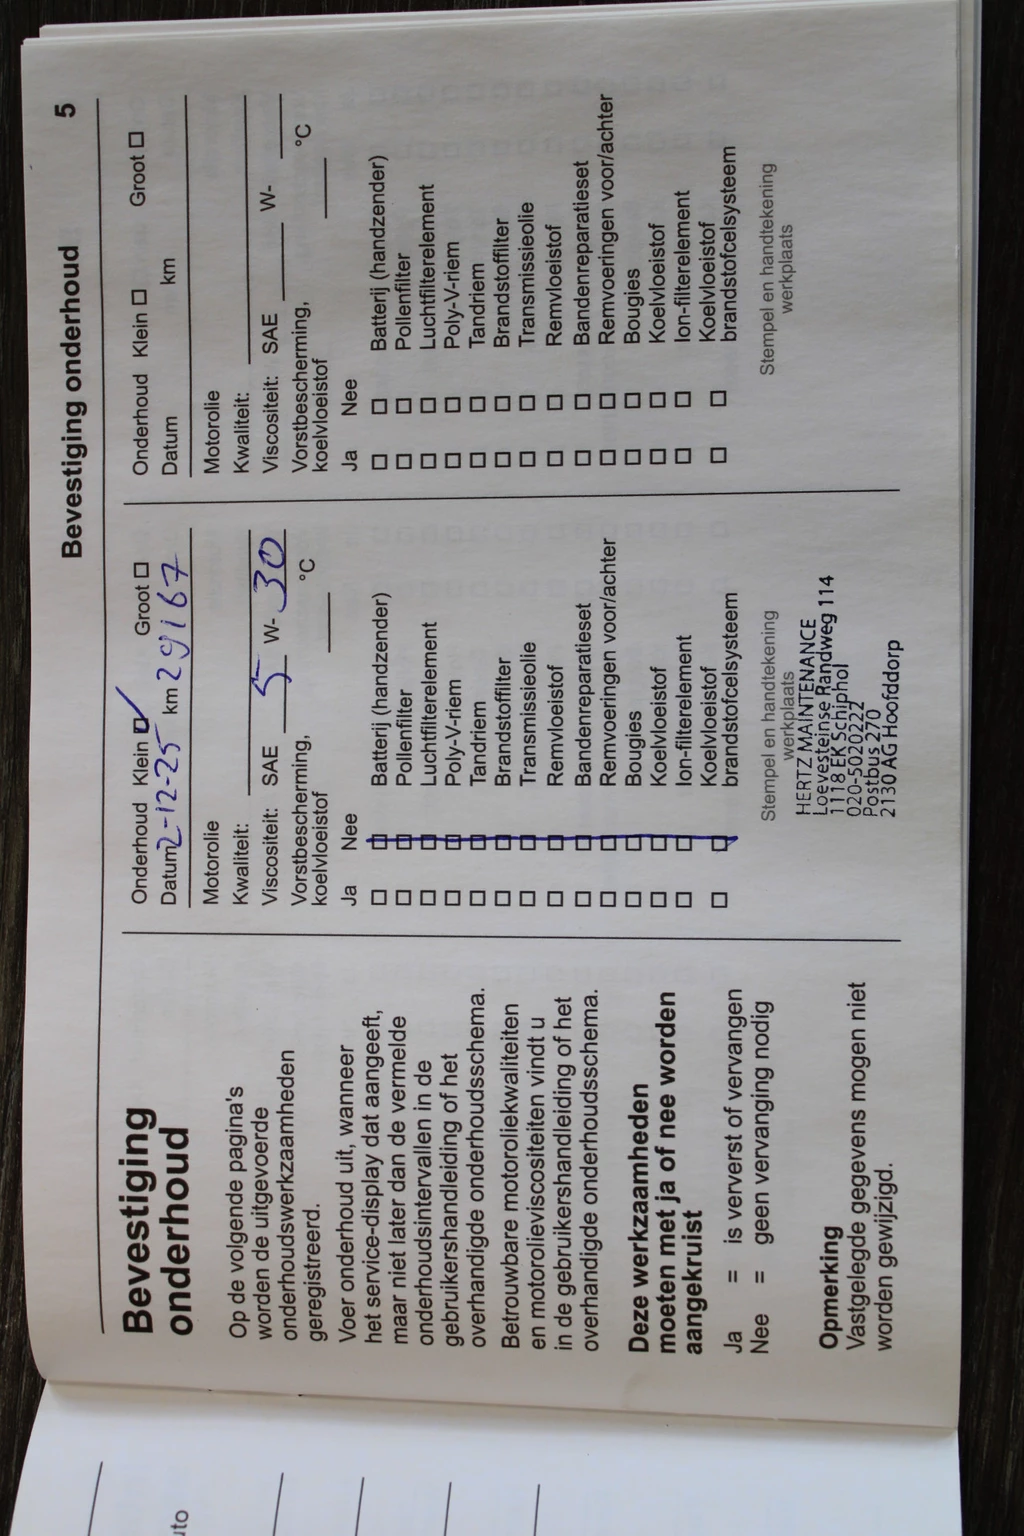 Bevestiging onderhoud 5
Bevestiging
onderhoud
Op de volgende pagina's
worden de uitgevoerde
onderhoudswerkzaamheden
geregistreerd.
Voer onderhoud uit, wanneer
het service-display dat aangeeft,
maar niet later dan de vermelde
onderhoudsintervallen in de
gebruikershandleiding of het
overhandigde onderhoudsschema.
Betrouwbare motoroliekwaliteiten
en motorolieviscositeiten vindt u
in de gebruikershandleiding of het
overhandigde onderhoudsschema.
Deze werkzaamheden
moeten met ja of nee worden
aangekruist
Ja = is ververst of vervangen
Nee = geen vervanging nodig
Opmerking
Vastgelegde gegevens mogen niet
worden gewijzigd.
Onderhoud Klein Groot
Datum 2-12-25 km 29167
Motorolie
Kwaliteit:
Viscositeit: SAE 5 W- 30
Vorstbescherming,
koelvloeistof °C
Ja Nee
Batterij (handzender)
Pollenfilter
Luchtfilterelement
Poly-V-riem
Tandriem
Brandstoffilter
Transmissieolie
Remvloeistof
Bandenreparatieset
Remvoeringen voor/achter
Bougies
Koelvloeistof
Ion-filterelement
Koelvloeistof
brandstofcelsysteem
Stempel en handtekening
werkplaats
HERTZ MAINTENANCE
Loevesteinse Randweg 114
1118 EK Schiphol
020-5020222
Postbus 270
2130 AG Hoofddorp
Onderhoud Klein Groot
Datum km
Motorolie
Kwaliteit:
Viscositeit: SAE W-
Vorstbescherming,
koelvloeistof °C
Ja Nee
Batterij (handzender)
Pollenfilter
Luchtfilterelement
Poly-V-riem
Tandriem
Brandstoffilter
Transmissieolie
Remvloeistof
Bandenreparatieset
Remvoeringen voor/achter
Bougies
Koelvloeistof
Ion-filterelement
Koelvloeistof
brandstofcelsysteem
Stempel en handtekening
werkplaats